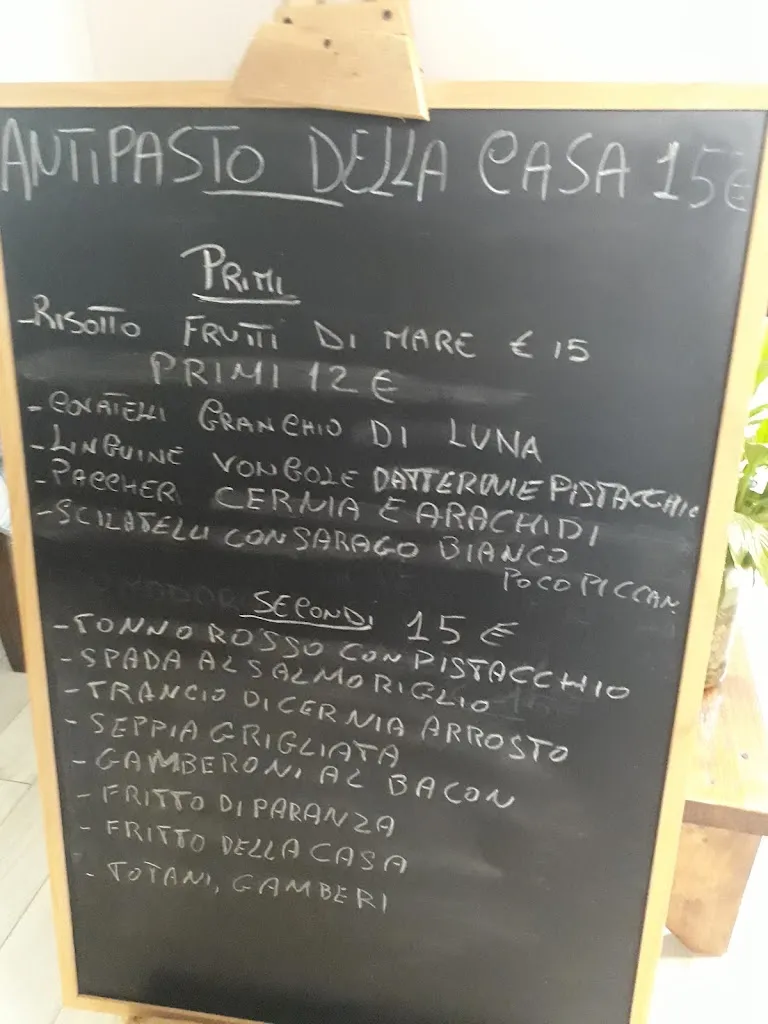 ANTIPASTO DELLA CASA 15€
PRIMI
-RISOTTO FRUTTI DI MARE € 15
PRIMI 12 €
- CAVATELLI GRANCHIO DI LUNA
- LINGUINE VONGOLE DATTERINI E PISTACCHIO
- PACCHERI CERNIA E ARACHIDI
- SCILATELLI CON SARAGO BIANCO
POCO PICCAN
SECONDI 15 €
- TONNO ROSSO CON PISTACCHIO
- SPADA AL SALMORIGLIO
- TRANCIO DI CERNIA ARROSTO
- SEPPIA GRIGLIATA
- GAMBERONI AL BACON
- FRITTO DI PARANZA
- FRITTO DELLA CASA
- TOTANI, GAMBERI